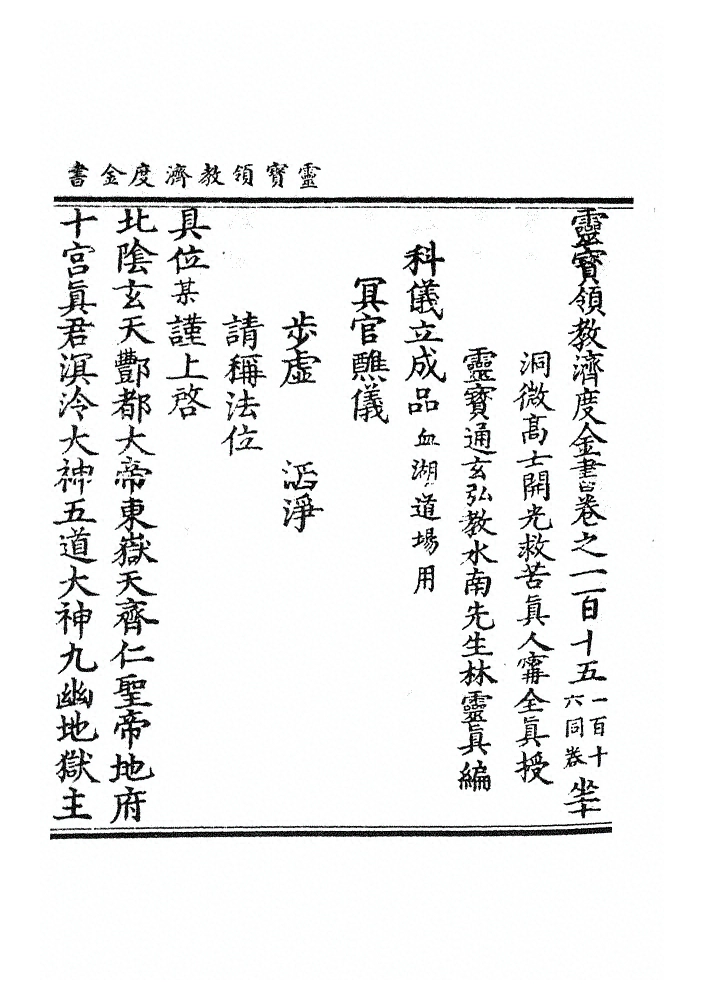 靈寶領教濟度金書
靈寶領教濟度金書卷之一百十五 一百十六同卷 坐十
洞微高士開光救苦眞人甯全眞授
靈寶通玄弘教水南先生林靈眞編
科儀立成品 血湖道場用
冥官醮儀
步虛 洉淨
請稱法位
具位某謹上啓
北陰玄天酆都大帝東嶽天齊仁聖帝地府
十宮眞君溟泠大神五道大神九幽地獄主